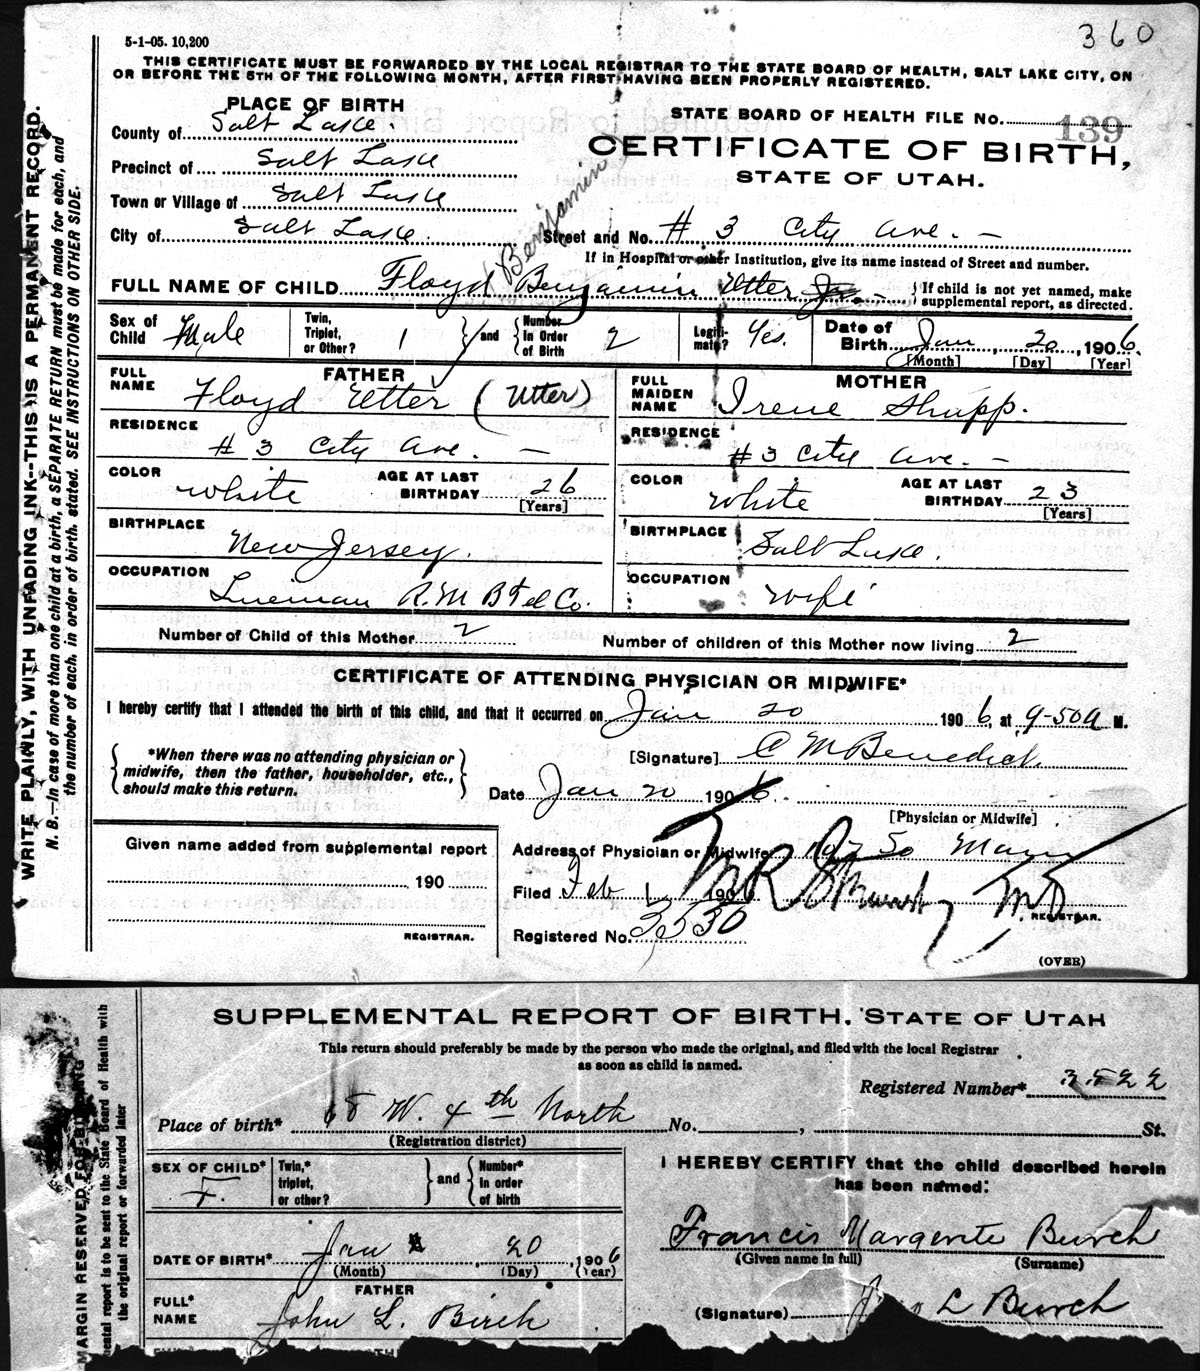 360
5-1-05. 10,200
THIS CERTIFICATE MUST BE FORWARDED BY THE LOCAL REGISTRAR TO THE STATE BOARD OF HEALTH, SALT LAKE CITY, ON
OR BEFORE THE 5TH OF THE FOLLOWING MONTH, AFTER FIRST HAVING BEEN PROPERLY REGISTERED.
WRITE PLAINLY, WITH UNFADING INK--THIS IS A PERMANENT RECORD.
N. B.--In case of more than one child at a birth, a SEPARATE RETURN must be made for each, and
the number of each, in order of birth, stated. SEE INSTRUCTIONS ON OTHER SIDE.
PLACE OF BIRTH
County of Salt Lake.
Precinct of Salt Lake
Town or Village of Salt Lake
City of Salt Lake.
STATE BOARD OF HEALTH FILE NO. 139
CERTIFICATE OF BIRTH,
STATE OF UTAH.
Street and No. # 3 City Ave. -
If in Hospital or other Institution, give its name instead of Street and number.
Benjamin
FULL NAME OF CHILD Floyd Benjamin Utter Jr. - If child is not yet named, make
supplemental report, as directed.
Sex of Child Male Twin, Triplet, or Other? 1 and Number in Order of Birth 2 Legiti-mate? Yes. Date of Birth Jan 20, 1906.
[Month] [Day] [Year]
FATHER
FULL NAME Floyd Etter (Utter)
RESIDENCE # 3 City Ave. -
COLOR White AGE AT LAST BIRTHDAY 26
[Years]
BIRTHPLACE New Jersey.
OCCUPATION Lineman R.M B Tel Co.
MOTHER
FULL MAIDEN NAME Irene Shupp.
RESIDENCE # 3 City Ave. -
COLOR White AGE AT LAST BIRTHDAY 23
[Years]
BIRTHPLACE Salt Lake.
OCCUPATION Wife
Number of Child of this Mother 2 Number of children of this Mother now living 2
CERTIFICATE OF ATTENDING PHYSICIAN OR MIDWIFE*
I hereby certify that I attended the birth of this child, and that it occurred on Jan 20 1906, at 9-50a M.
*When there was no attending physician or
midwife, then the father, householder, etc.,
should make this return.
[Signature] C M Benedict.
Date Jan 20 1906.
[Physician or Midwife]
Given name added from supplemental report
190
REGISTRAR.
Address of Physician or Midwife So Main
Filed Feb 1 1906 M.D.
REGISTRAR.
Registered No. 3530
(OVER)
SUPPLEMENTAL REPORT OF BIRTH. STATE OF UTAH
This return should preferably be made by the person who made the original, and filed with the local Registrar
as soon as child is named.
MARGIN RESERVED FOR BINDING
mental report is to be sent to the State Board of Health with
the original report or forwarded later
Registered Number* 3522
Place of birth* 68 W. 4th North No. , St.
(Registration district)
SEX OF CHILD* F. Twin,* triplet, or other? and Number* in order of birth
DATE OF BIRTH* Jan 20, 1906
(Month) (Day) (Year)
FATHER
FULL* NAME John L. Birch
I HEREBY CERTIFY that the child described herein
has been named:
Francis Margerite Burch
(Given name in full) (Surname)
(Signature) L Burch